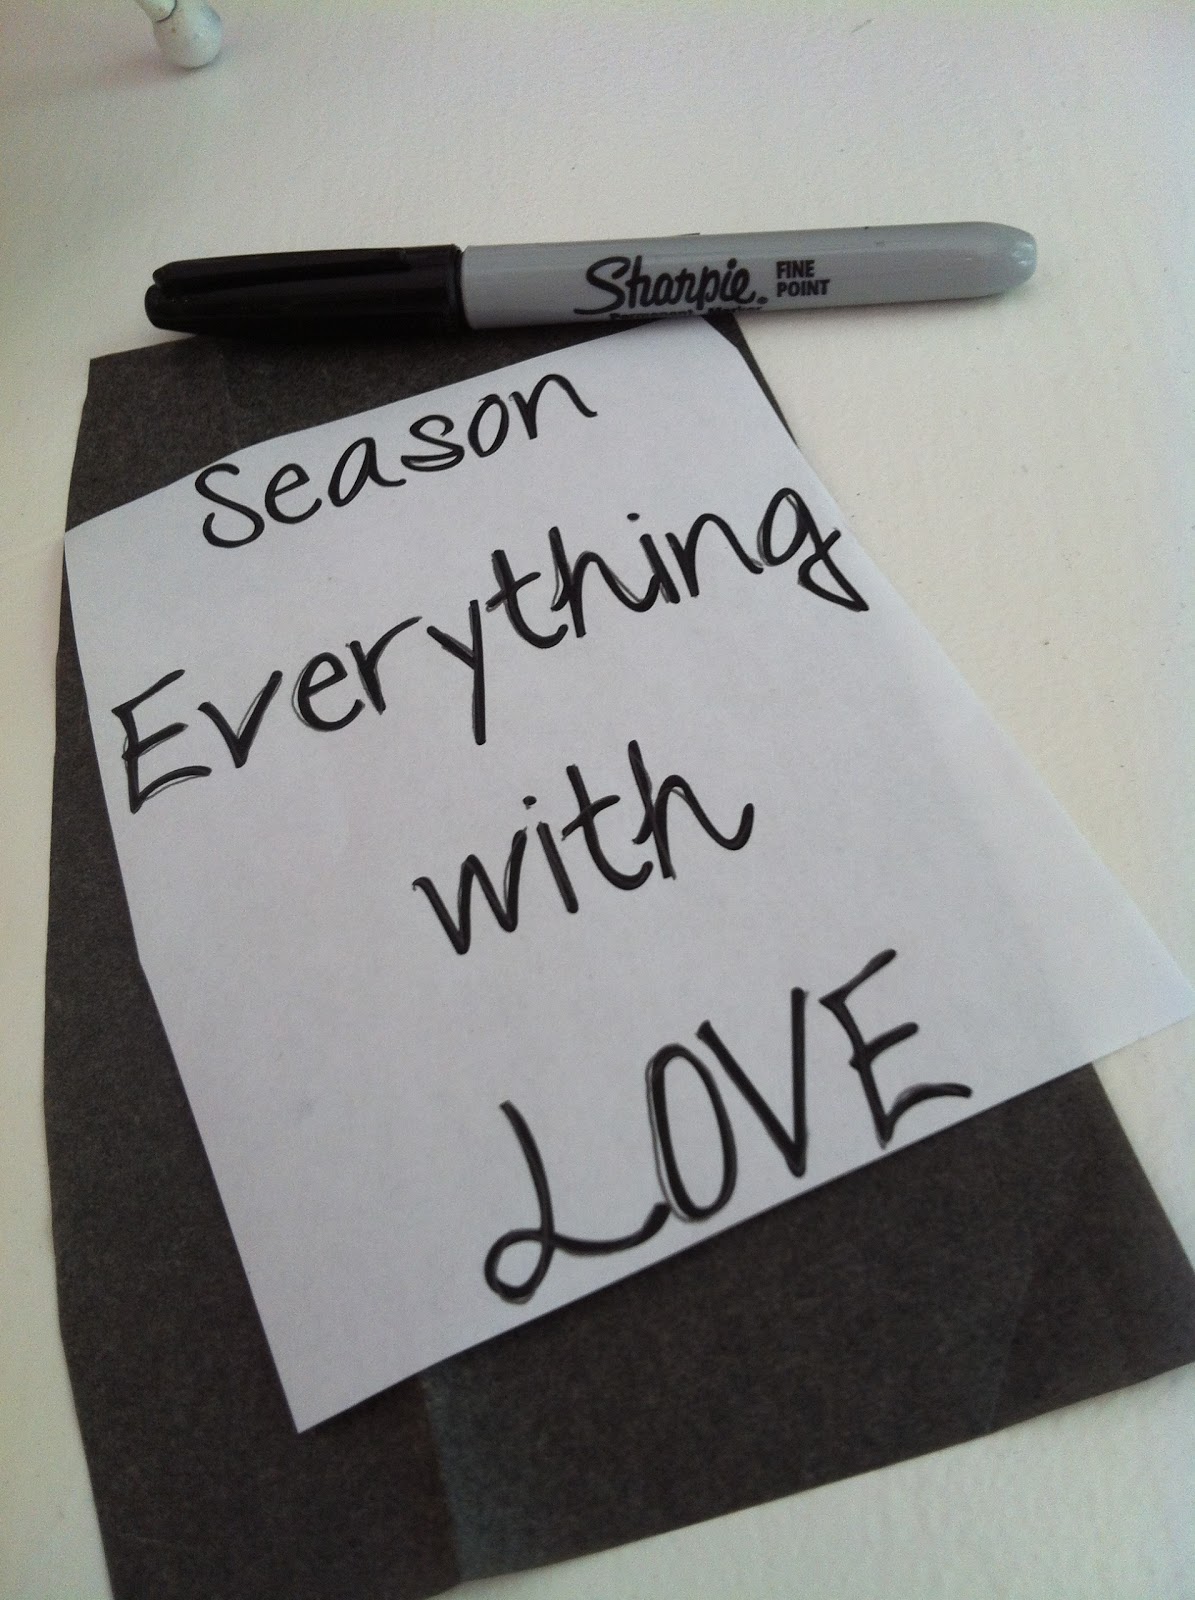 Sharpie. FINE
POINT
Permanent Marker
Season
Everything
with
LOVE